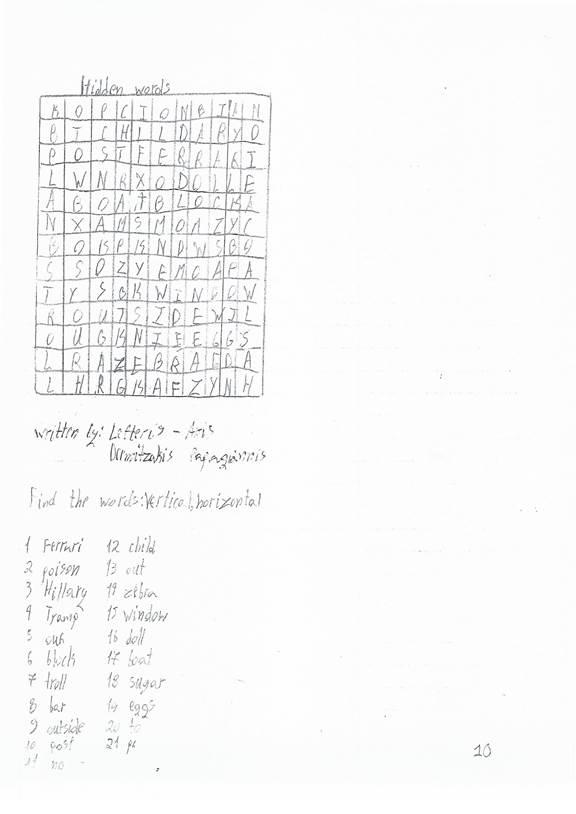 Hidden words
K O P C I O N B I A N
B T C H I L D A R Y O
P O S T F E R R A R I
L W N R X O D O L L E
A B O A T B L O C K A
N X A M S M O A Z Y C
B O K P K N D W S B U
S S O Z Y E M O A P A
T Y S B K W I N D O W
R O U T S I D E W I L
O U G K N I F E G G S
L R A Z E B R A E D A
L H R G K A F Z Y N H
written by: Lefteris - Aris
Find the words: Vertical, horizontal
1 Ferrari 12 child
2 poison 13 out
3 Hillary 14 zebra
4 Tramp 15 window
5 16 doll
6 block 17 boat
7 troll 18 sugar
8 bar 19 eggs
9 outside 20 to
10 post 21
11 no
10